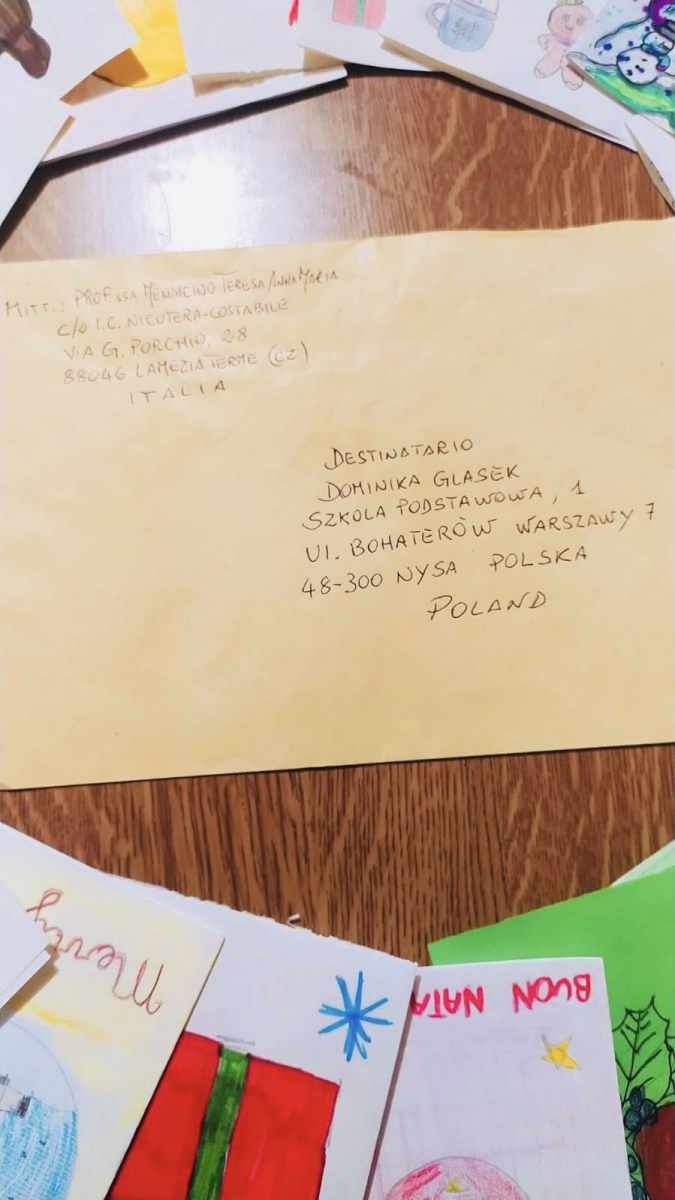 MITT.: PROF.SSA MENNICINO TERESA ANNA MARIA
C/O I.C. NICOTERA-COSTABILE
VIA G. PORCHIO, 28
88046 LAMEZIA TERME (CZ)
ITALIA
DESTINATARIO
DOMINIKA GLASEK
SZKOLA PODSTAWOWA, 1
Ul. BOHATERÓW WARSZAWY 7
48-300 NYSA POLSKA
POLAND
Merry
BUON NATA